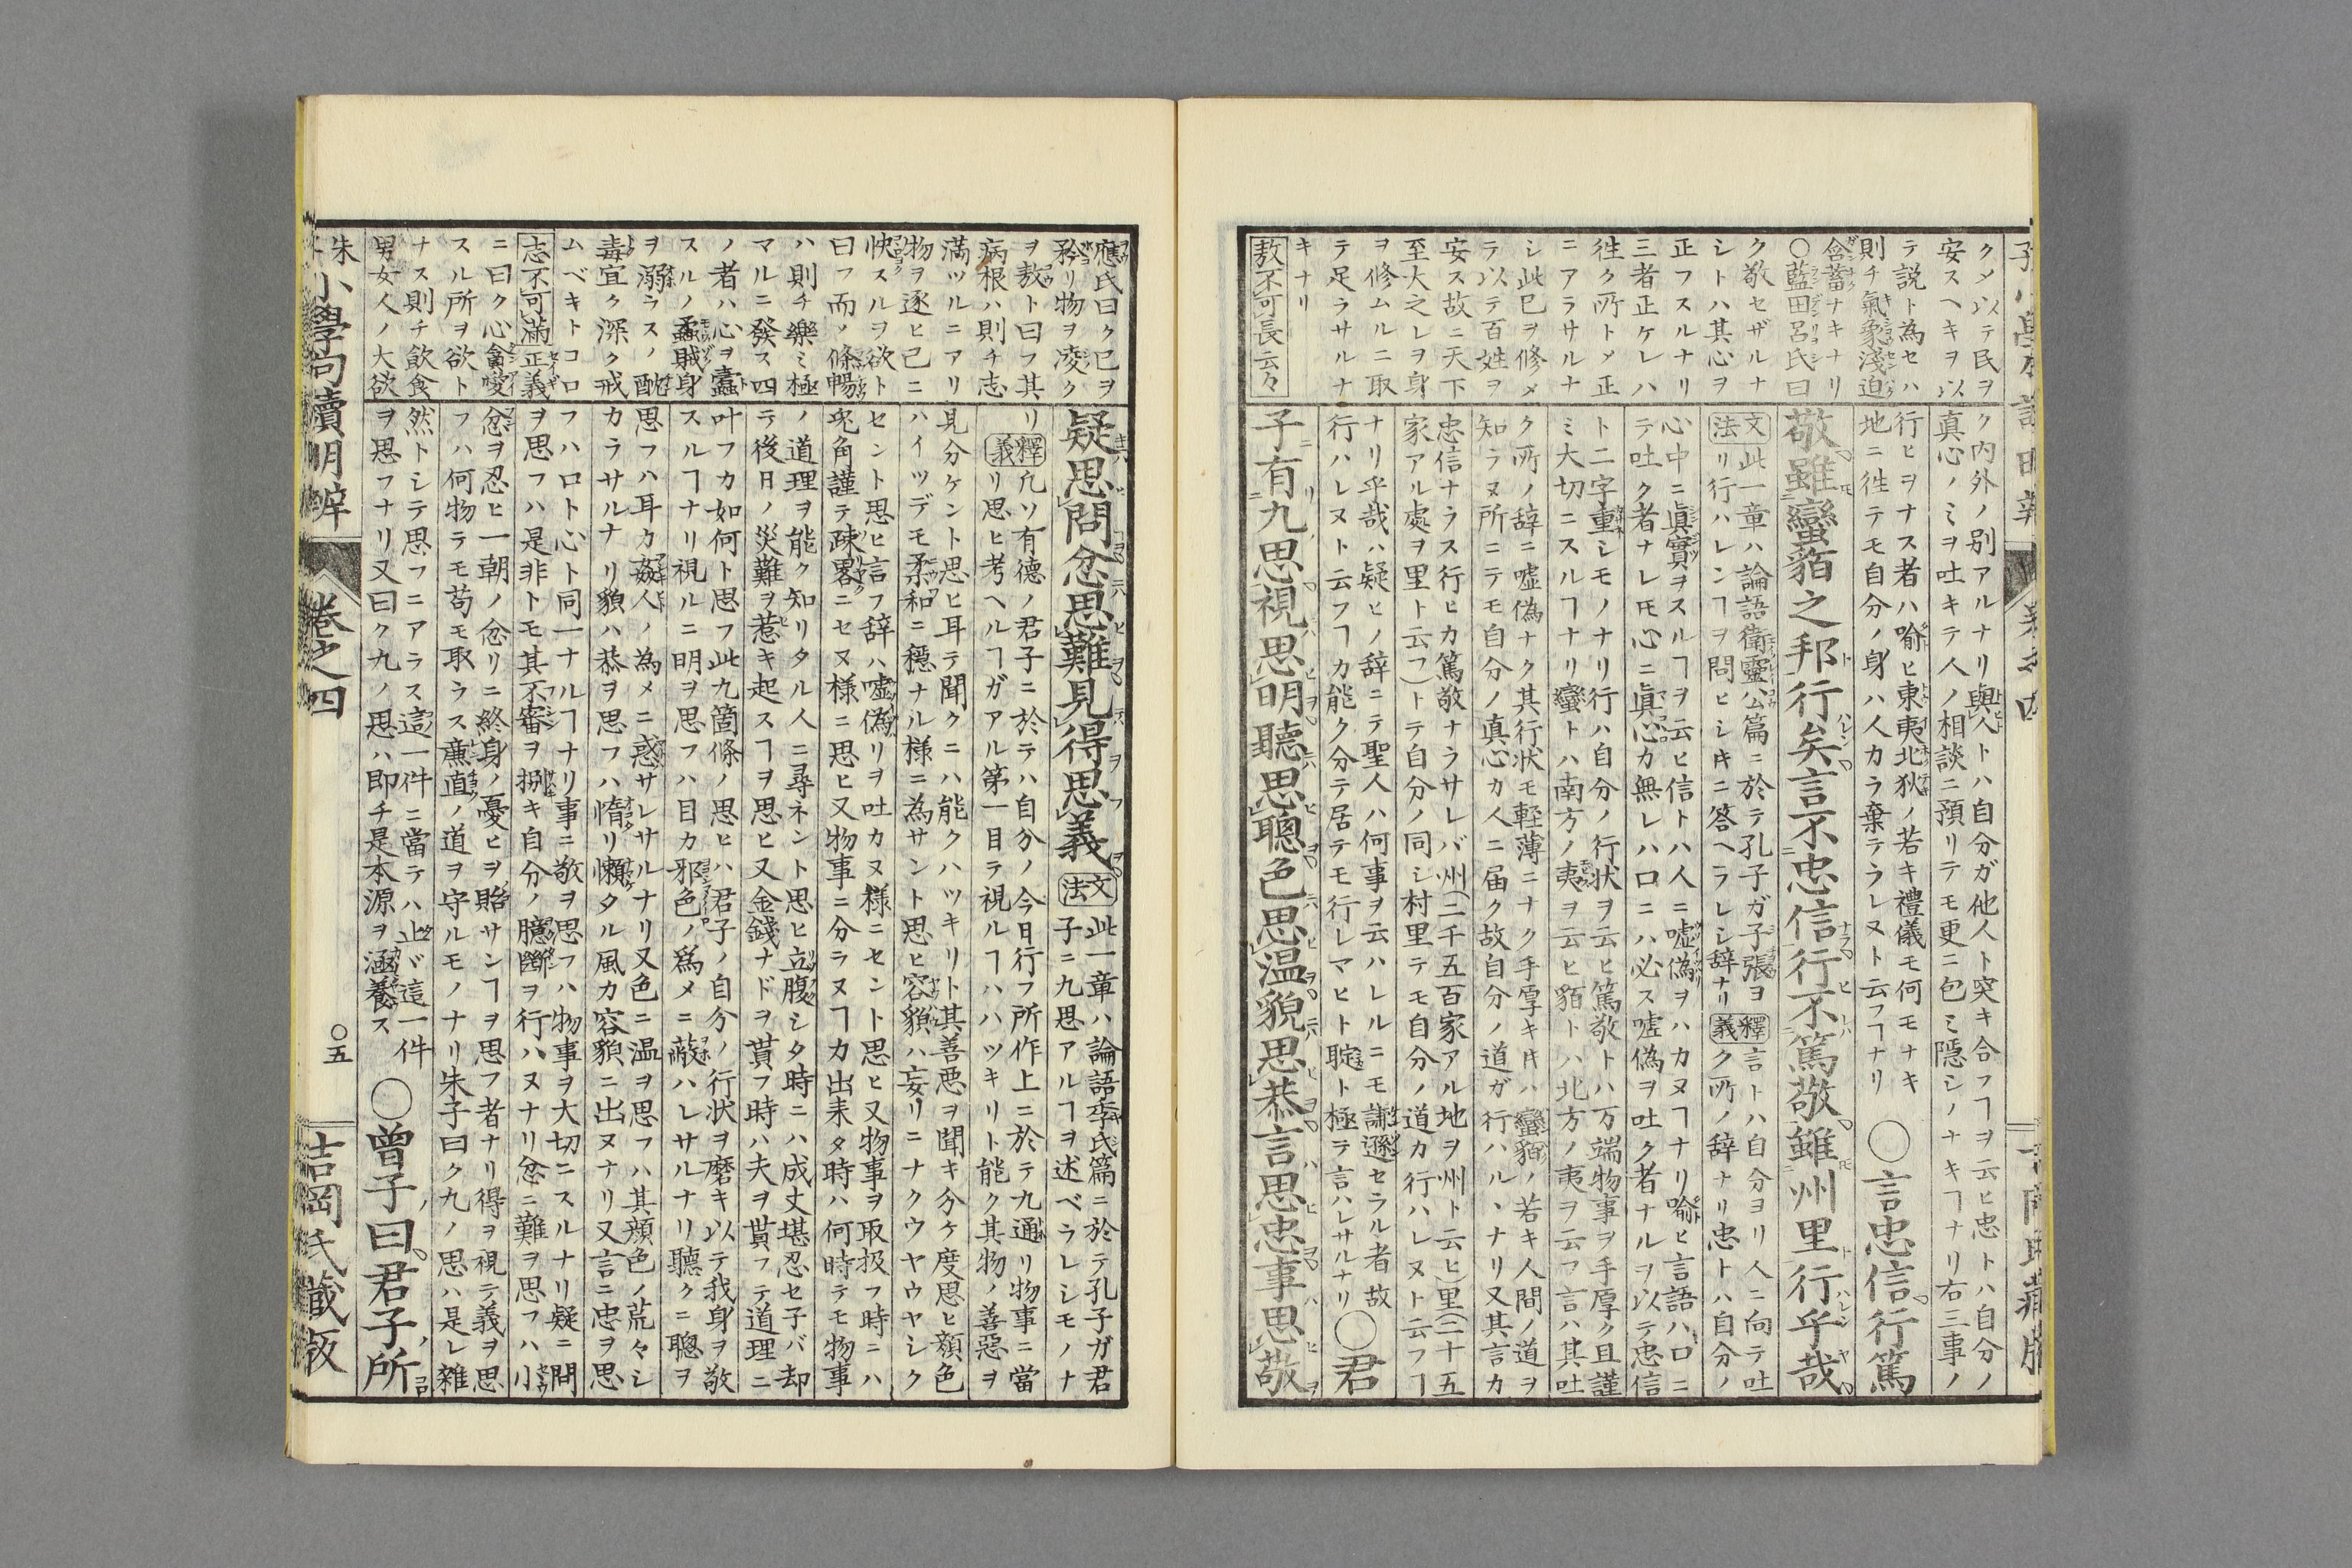 クメ以テ民ヲ
安スヘキヲ以
テ説ト為セハ
則チ氣象淺迫
含蓄ナキナリ
○藍田呂氏曰
ク敬セザルナ
シトハ其心ヲ
正フスルナリ
三者正ケレハ
徃ク所トメ正
ニアラサルナ
シ此已ヲ修メ
ラ以テ百姓ヲ
安ス故ニ天下
至大之レヲ身
ヲ修ムルニ取
テ足ラサルナ
キナリ
敖不可長云々
ク内外ノ別アルナリ與人トハ自分ガ他人ト突キ合フヿヲ云ヒ忠トハ自分ノ
真心ノミヲ吐キテ人ノ相談ニ預リテモ更ニ包ミ隠シノナキヿナリ右三事ノ
行ヒヲナス者ハ喻ヒ東夷北狄ノ若キ禮儀モ何モナキ
地ニ徃テモ自分ノ身ハ人カラ棄テラレヌト云フヿナリ
○言忠信行篤
敬雖蠻貊之邦行矣言不忠信行不篤敬雖州里行乎哉
文法
此一章ハ論語衛靈公篇ニ於テ孔子ガ子張ヨ
リ行ハレンヿヲ問ヒシキニ答ヘラレシ辞ナリ
釋義
言トハ自分ヨリ人ニ向テ吐
ク所ノ辞ナリ忠トハ自分ノ
心中ニ眞實ヲスルヿヲ云ヒ信トハ人ニ嘘偽ヲハカヌヿナリ喻ヒ言語ハ口ニ
テ吐ク者ナレ𪜈心ニ眞心カ無レハ口ニハ必ス嘘偽ヲ吐ク者ナルヲ以テ忠信
ト二字重シモノナリ行ハ自分ノ行状ヲ云ヒ篤敬トハ万端物事ヲ手厚ク且謹
ミ大切ニスルヿナリ蠻トハ南方ノ夷ヲ云ヒ貊トハ北方ノ夷ヲ云フ言ハ其吐
ク所ノ辞ニ嘘偽ナク其行状モ軽薄ニナク手厚キ𪜈ハ蠻貊ノ若キ人間ノ道ヲ
知ラヌ所ニテモ自分ノ真心カ人ニ届ク故自分ノ道ガ行ハルヽナリ又其言カ
忠信ナラス行ヒカ篤敬ナラサレバ州(二千五百家アル地ヲ州ト云ヒ)里(二十五
家アル處ヲ里ト云フ)トテ自分ノ同シ村里テモ自分ノ道カ行ハレヌト云フヿ
ナリ乎哉ハ疑ヒノ辞ニテ聖人ハ何事ヲ云ハレルニモ謙遜セラル者故
行ハレヌト云フヿカ能ク分テ居テモ行レマヒト聢ト極テ言ハレサルナリ
○君
子有九思視思明聽思聰色思温貌思恭言思忠事思敬
應氏曰ク已ヲ
矜リ物ヲ凌ク
ヲ敖ト曰フ其
病根ハ則チ志
満ツルニアリ
物ヲ逐ヒ已ニ
快スルヲ欲ト
曰フ而メ條暢
ハ則チ樂ミ極
マルニ發ス四
ノ者ハ心ヲ蠹
スルノ蟊賊身
ヲ溺ラスノ酖
毒宜ク深ク戒
ムベキトコロ
志不可滿
正義
ニ曰ク心貪愛
スル所ヲ欲ト
ナス則チ飲食
男女人ノ大欲
疑思問忿思難見得思義
文法
此一章ハ論語季氏篇ニ於テ孔子ガ君
子ニ九思アルヿヲ述ベラレシモノナ
リ
釋義
凡ソ有德ノ君子ニ於テハ自分ノ今日行フ所作上ニ於テ九通リ物事ニ當
リ思ヒ考ヘルヿガアル第一目テ視ルヿハハツキリト能ク其物ノ善惡ヲ
見分ケント思ヒ耳テ聞クニハ能クハツキリト其善惡ヲ聞キ分ケ度思ヒ顏色
ハイツデモ柔和ニ穩ナル様ニ為サント思ヒ容貌ハ妄リニナクウヤウヤシク
セント思ヒ言フ辞ハ嘘偽リヲ吐カヌ様ニセント思ヒ又物事ヲ取扱フ時ニハ
兎角謹テ疎畧ニセヌ様ニ思ヒ又物事ニ分ラヌヿカ出耒タ時ハ何時テモ物事
ノ道理ヲ能ク知リタル人ニ尋ネント思ヒ立腹シタ時ニハ成丈堪忍セ子バ却
テ後日ノ災難ヲ惹キ起スヿヲ思ヒ又金錢ナドヲ貰フ時ハ夫ヲ貰フテ道理ニ
叶フカ如何ト思フ此九箇條ノ思ヒハ君子ノ自分ノ行状ヲ磨キ以テ我身ヲ敬
スルヿナリ視ルニ明ヲ思フハ目カ邪色ノ為メニ蔽ハレサルナリ聽クニ聰ヲ
思フハ耳カ姦人ノ為メニ惑サレサルナリ又色ニ温ヲ思フハ其顏色ノ荒々シ
カラサルナリ貌ハ恭ヲ思フハ惰リ懶タル風カ容貌ニ出ヌナリ又言ニ忠ヲ思
フハ口ト心ト同一ナルヿナリ事ニ敬ヲ思フハ物事ヲ大切ニスルナリ疑ニ問
ヲ思フハ是非トモ其不審ヲ捌キ自分ノ臆斷ヲ行ハヌナリ忿ニ難ヲ思フハ小
忿ヲ忍ヒ一朝ノ忿リニ終身ノ憂ヒヲ貽サンヿヲ思フ者ナリ得ヲ視テ義ヲ思
フハ何物ラモ苟モ取ラス廉直ノ道ヲ守ルモノナリ朱子曰ク九ノ思ハ是レ雜
然トシテ思フニアラス這一件ニ當テハ止ヾ這一件
ヲ思フナリ又曰ク九ノ思ハ即チ是本源ヲ涵養ス
○曾子曰君子所
小學句讀明辨
卷之四
○五
吉岡氏藏版